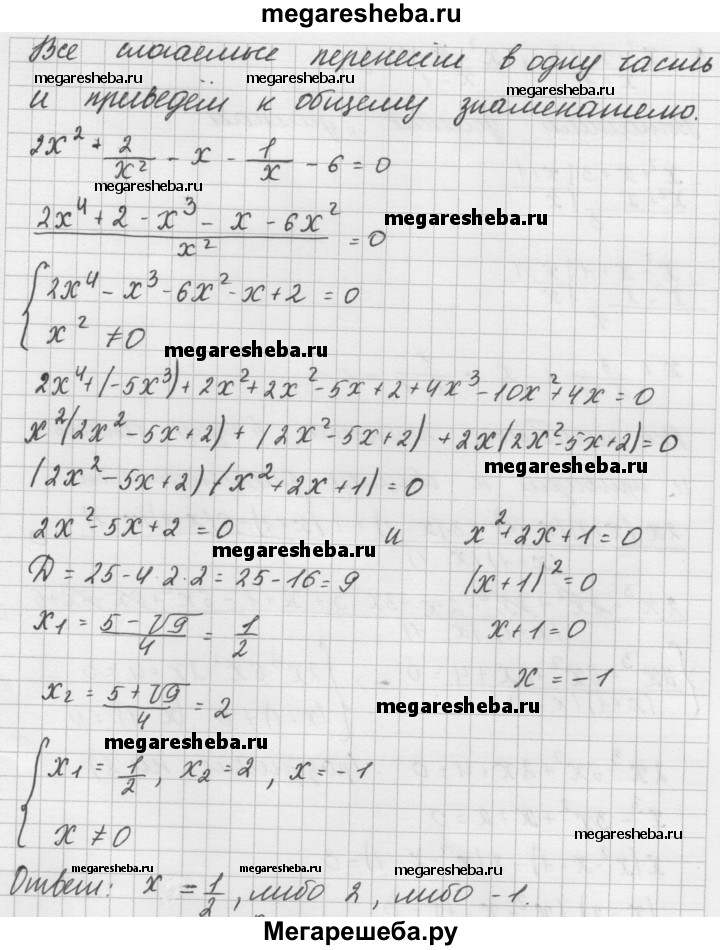 megaresheba.ru
Все слагаемые перенесём в одну часть
megaresheba.ru
megaresheba.ru
и приведём к общему знаменателю.
2x² + 2/x² - x - 1/x - 6 = 0
megaresheba.ru
(2x⁴ + 2 - x³ - x - 6x²)/x² = 0
megaresheba.ru
{ 2x⁴ - x³ - 6x² - x + 2 = 0
x² ≠ 0
megaresheba.ru
2x⁴ + (-5x³) + 2x² + 2x² - 5x + 2 + 4x³ - 10x² + 4x = 0
x²(2x² - 5x + 2) + (2x² - 5x + 2) + 2x(2x² - 5x + 2) = 0
megaresheba.ru
(2x² - 5x + 2) (x² + 2x + 1) = 0
2x² - 5x + 2 = 0 и x² + 2x + 1 = 0
megaresheba.ru
D = 25 - 4·2·2 = 25 - 16 = 9 (x + 1)² = 0
x₁ = (5 - √9)/4 = 1/2 x + 1 = 0
x = -1
x₂ = (5 + √9)/4 = 2
megaresheba.ru
megaresheba.ru
{ x₁ = 1/2, x₂ = 2, x = -1
x ≠ 0
megaresheba.ru
megaresheba.ru
megaresheba.ru
megaresheba.ru
Ответ: x = 1/2, либо 2, либо -1.
Мегарешеба.ру